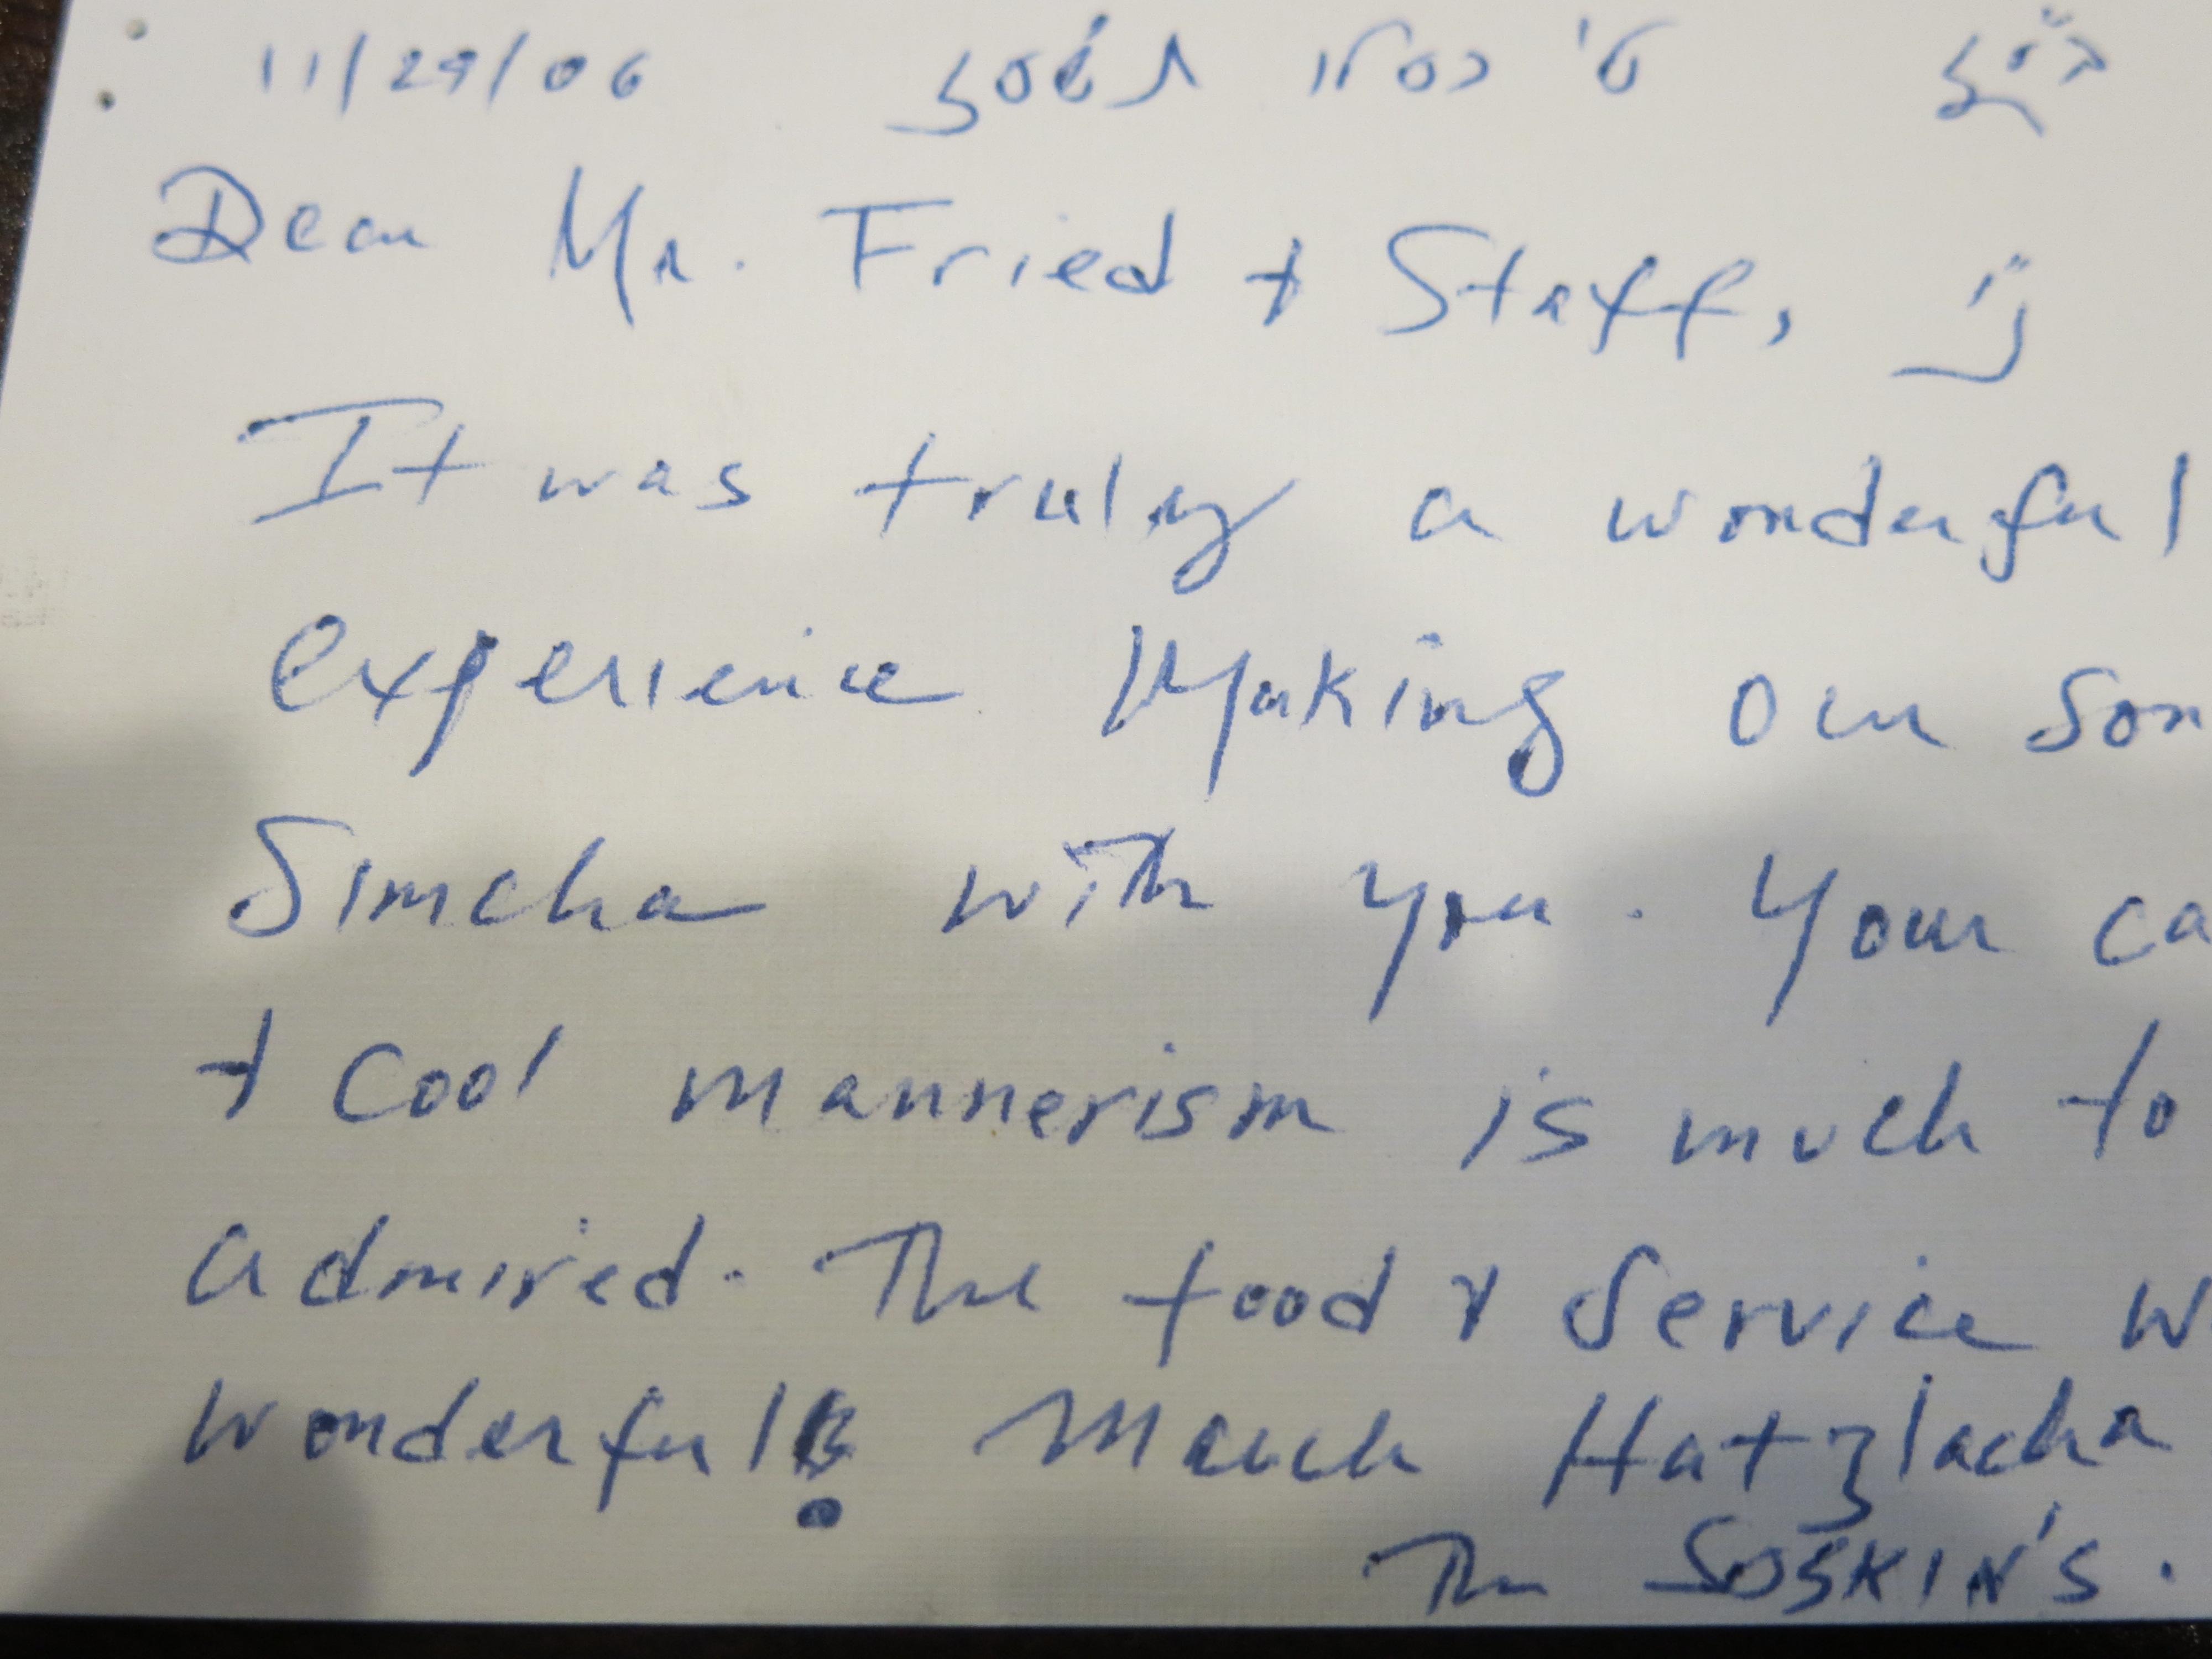 11/29/06 ט' כסלו תשס"ז
Dear Mr. Fried + Staff, נ"י
It was truly a wonderful
experience Making our son
Simcha with you. Your ca
+ cool mannerism is much to
admired. The food & Service w
wonderful! Much Hatzlacha
The SOSKIN'S.